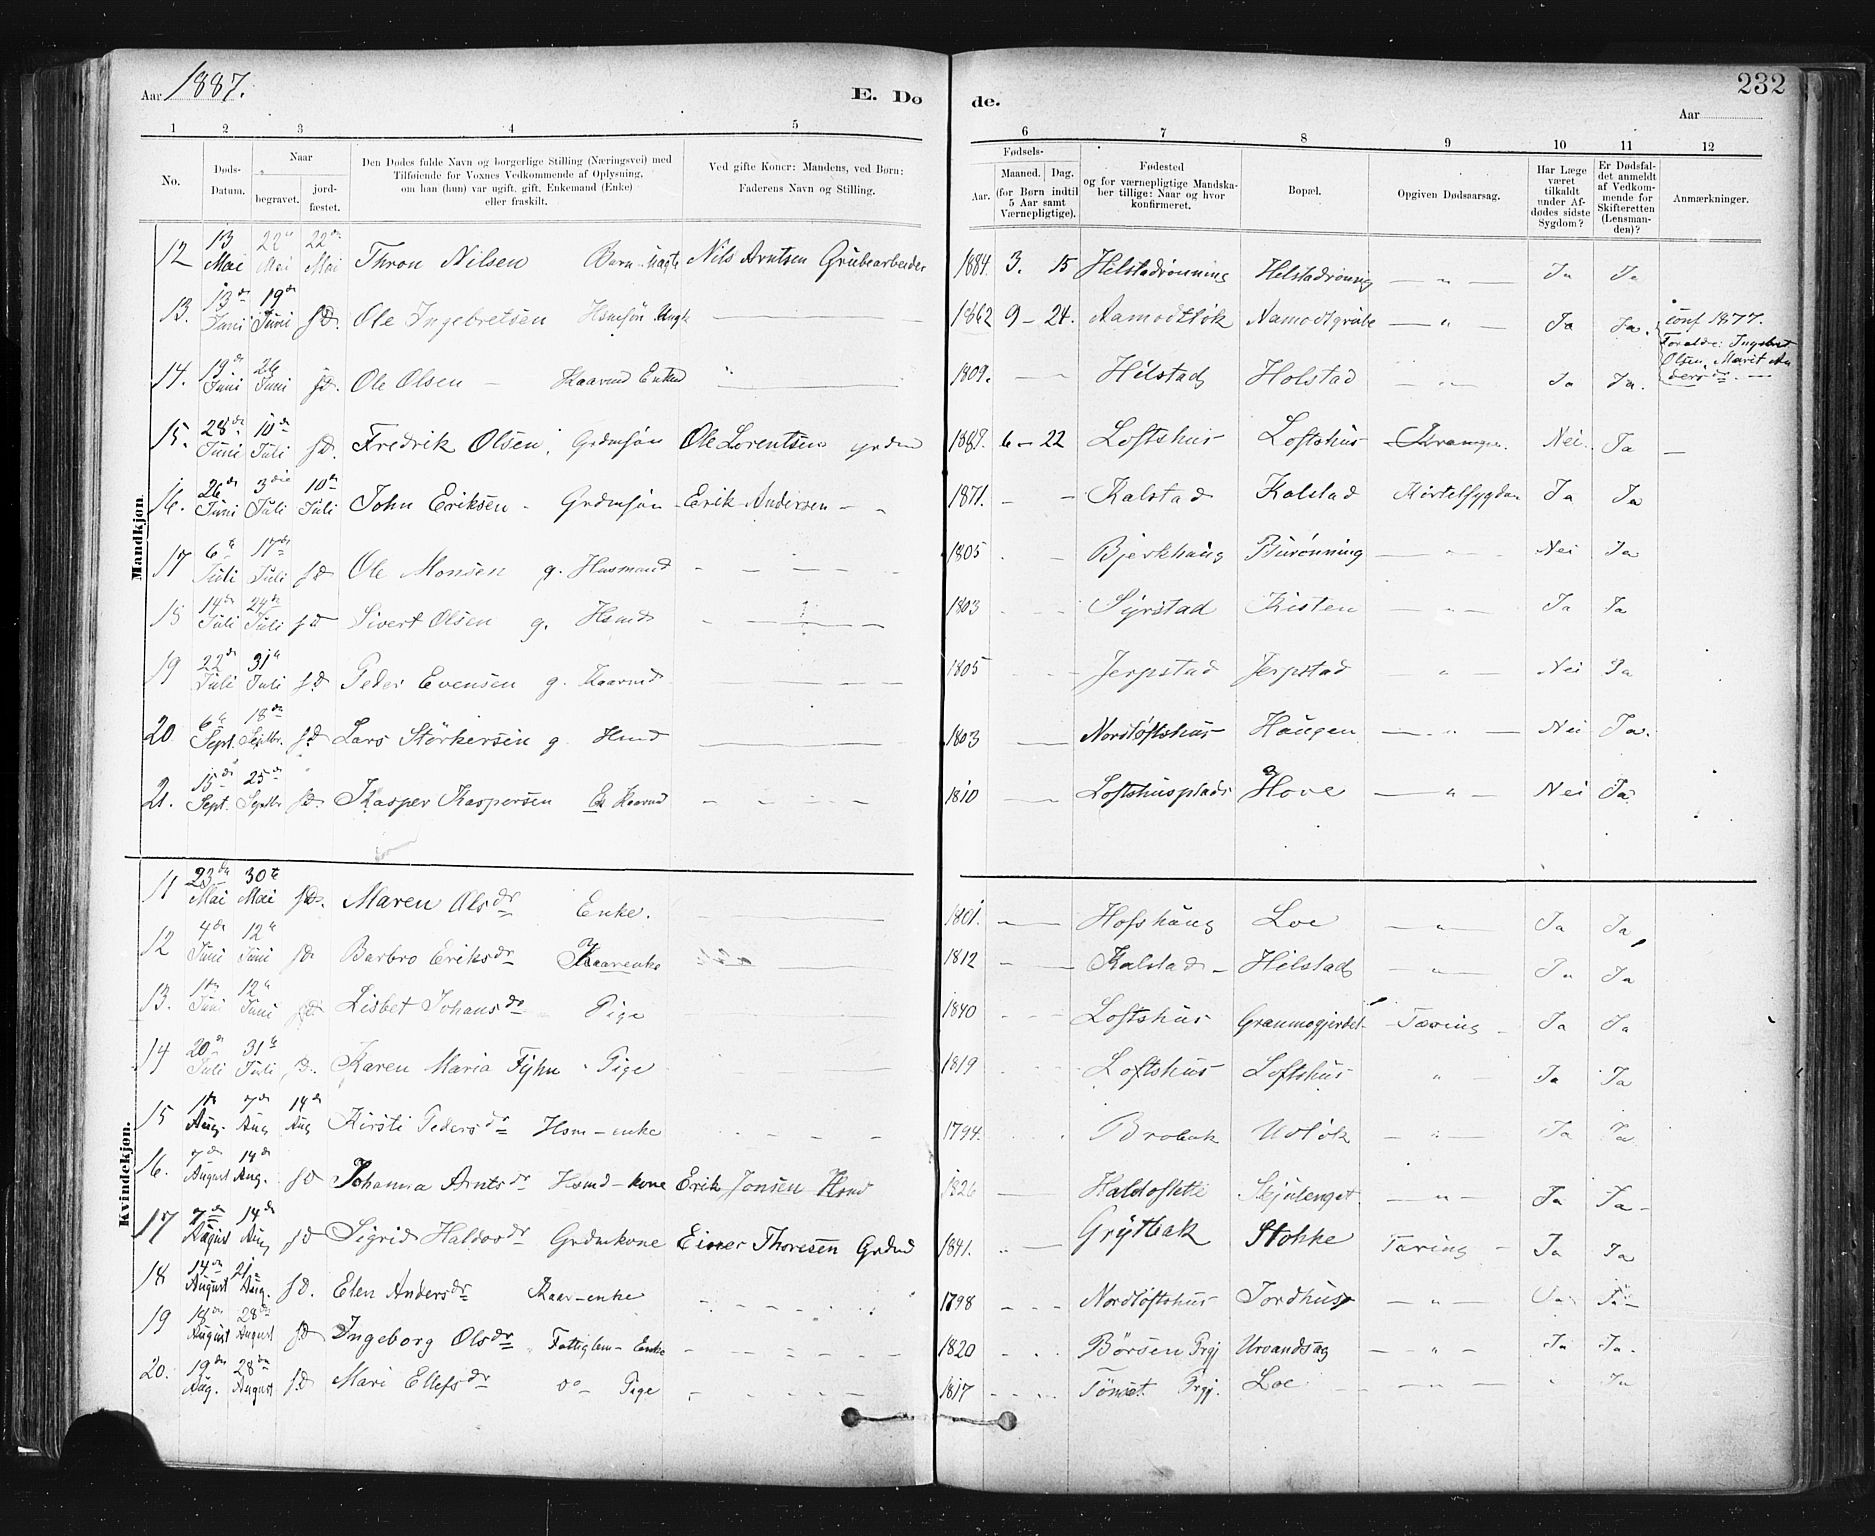 Aar 1887.
E. Do de.
232
Aar
1 2 3 4 5 6 7 8 9 10 11 12
No.
Døds-Datum.
Naar
begravet.
jord-fæstet.
Den Dødes fulde Navn og borgerlige Stilling (Næringsvei) med
Tilføiende for Voxnes Vedkommende af Oplysning,
om han (hun) var ugift, gift, Enkemand (Enke)
eller fraskilt.
Ved gifte Koner: Mandens, ved Børn:
Faderens Navn og Stilling.
Fødsels-
Aar. Maaned. Dag.
(for Børn indtil
5 Aar samt
Værnepligtige).
Fødested
og for værnepligtige Mandska-
ber tillige: Naar og hvor
konfirmeret.
Bopæl.
Opgiven Dødsaarsag.
Har Læge
været
tilkaldt
under Af-
dødes sidste
Sygdom?
Er Dødsfal-
det anmeldt
af Vedkom-
mende for
Skifteretten
(Lensman-
den)?
Anmærkninger.
Mandkjøn.
12 13 Mai 22 Mai 22de Mai Thron Nilsen Barn Nils Arntsen Grubearbeider 1884. 3. 15 Helstadrönning Helstadrönning — " — Ja Ja
13. 13de Juni 19de Juni fD. Ole Ingebretsen Hsmsön Ungk 1862 9 – 24. Aamodtlök Aamodtgrube — " — Ja Ja. conf 1877.
Forældre: Ingebret
Olsen, Marit An
dersdr. —
14. 19de Juni 26 Juni fD. Ole Olsen – Kaarmd Enkmd 1809. — Hilstad Holstad — " — Ja Ja.
15. 28de Juni 10de Juli fD. Fredrik Olsen, Grdmsön Ole Lorentsen grdmd 1887. 6 – 22 Loftshus Loftshus Krampe. Nei. Ja —
16. 26de Juni 3die Juli 10de Juli John Eriksen - Grdmsön - Erik Andersen - 1871. – – Kalstad Kolstad Ja Ja
17 6te Juli 17de Juli fD Ole Monsen g. Husmand 1805 Bjerkhaug — " — Nei Ja
18 14de Juli 24de Juli fD Sivert Olsen g. Hsmd 1803 Syrstad Kisten — " — Ja Ja
19 22de Juli 31te Juli fD Peder Evensen g. Kaarmd 1805 Jerpstad Jerpstad " Nei Ja
20 6te Sept. 18de Septbr. fD Lars Störkersen g Hsmd 1803 — Nordloftshus Haugen — " — Nei Ja.
21. 15de Sept. 25de Septbr fD. Kasper Kaspersen Ek Kaarmd 1810 — Loftshusplads Hove — " — Nei Ja
Kvindekjøn.
11 23de Mai 30te Mai fD. Maren Olsdr Enke. 1801. — Hofshaug Loe " Ja Ja
12 4de Juni 12te Juni fD Barbro Eriksdr Kaarenke 1812 Kalstad – Hilstad " Ja Ja
13. Juni 12te Juni fD Lisbet Johansdr Pige 1840 Loftshus Granmogjerdet Tæring Ja Ja
14 20de Juli 31te Juli fD. Karen Maria Fyhn - Pige 1819 Loftshus Loftshus " Ja Ja
15 Aug. 7de Aug 14de Aug Kirsti Pedersdr Hsm–enke 1794. — Brobak Udlök — " — Ja Ja
16. 7de August 14de Aug. fD Johanna Arntsdr Hsmd–kone Erik Jonsen Hsmd 1826 — — " — Ja Ja –
17 7de August 14de Aug fD Sigrid Haldosdr Grdmkone Einer Thoresen Grdmd 1841. " — Grytbak Stokke Tæring – Ja Ja
18 14de August 21 Aug. fD. Elen Andersdr Kaar–enke 1798 Nordloftshus Jordhus — " — Ja Ja –
19 18de August 28de August fD Ingeborg Olsdr Fattiglem – Enke 1820 Börsen Prgj — " — Ja Ja.
20. 19de Aug. 28de August fD Mari Ellefsdr do – Pige 1817 Tönset Prgj. Loe " Ja